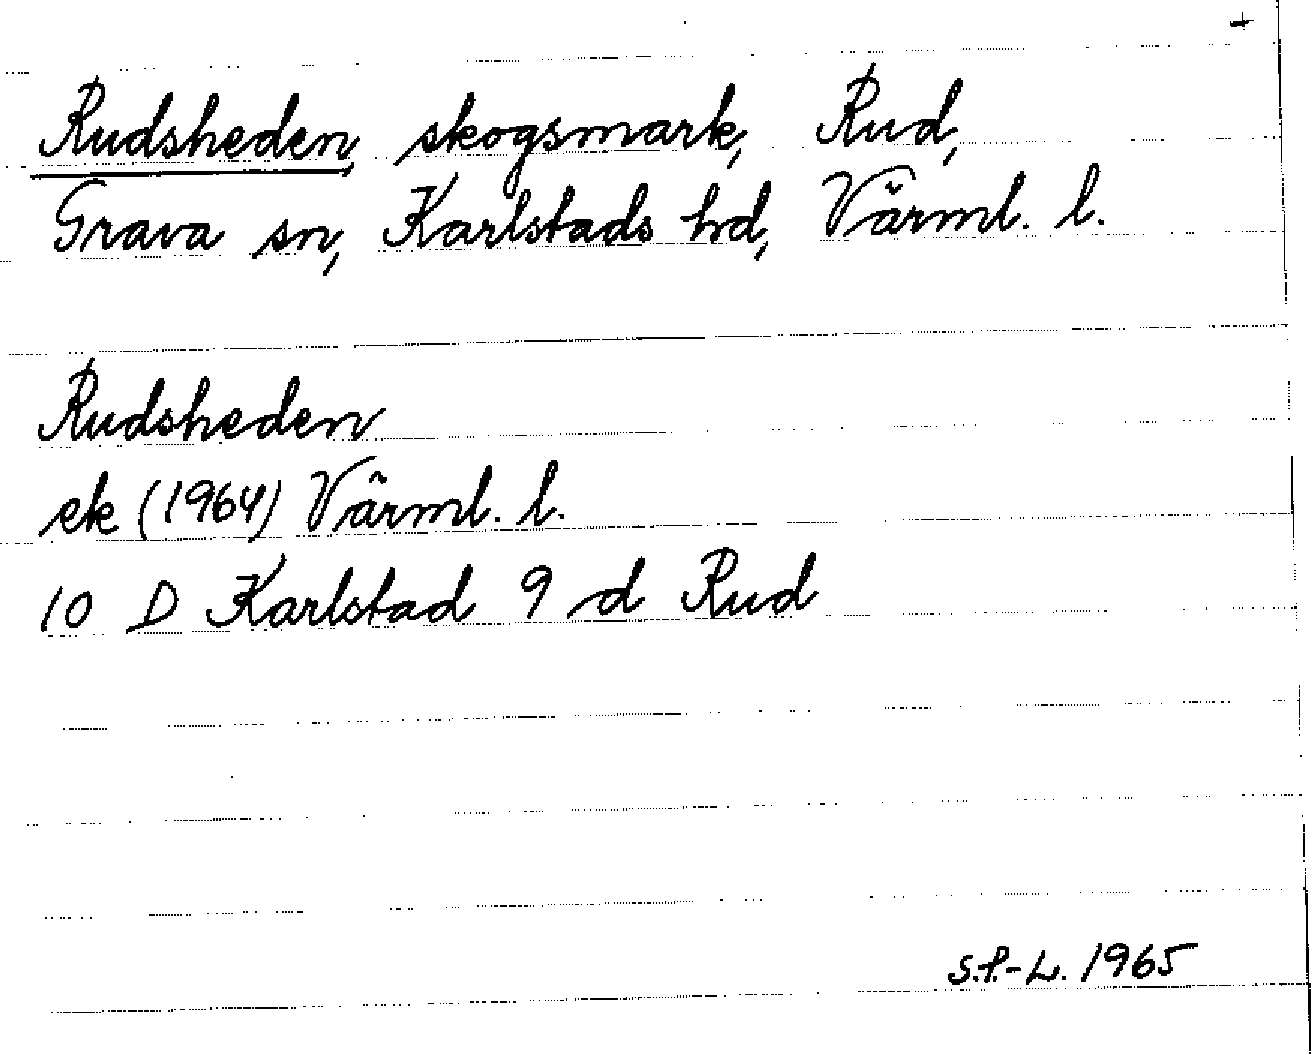 Rudsheden, skogsmark, Rud,
Grava sn, Karlstads hd, Värml. l.
Rudsheden
ek (1964) Värml. l.
10 D Karlstad 9 d Rud
S.P.-L. 1965